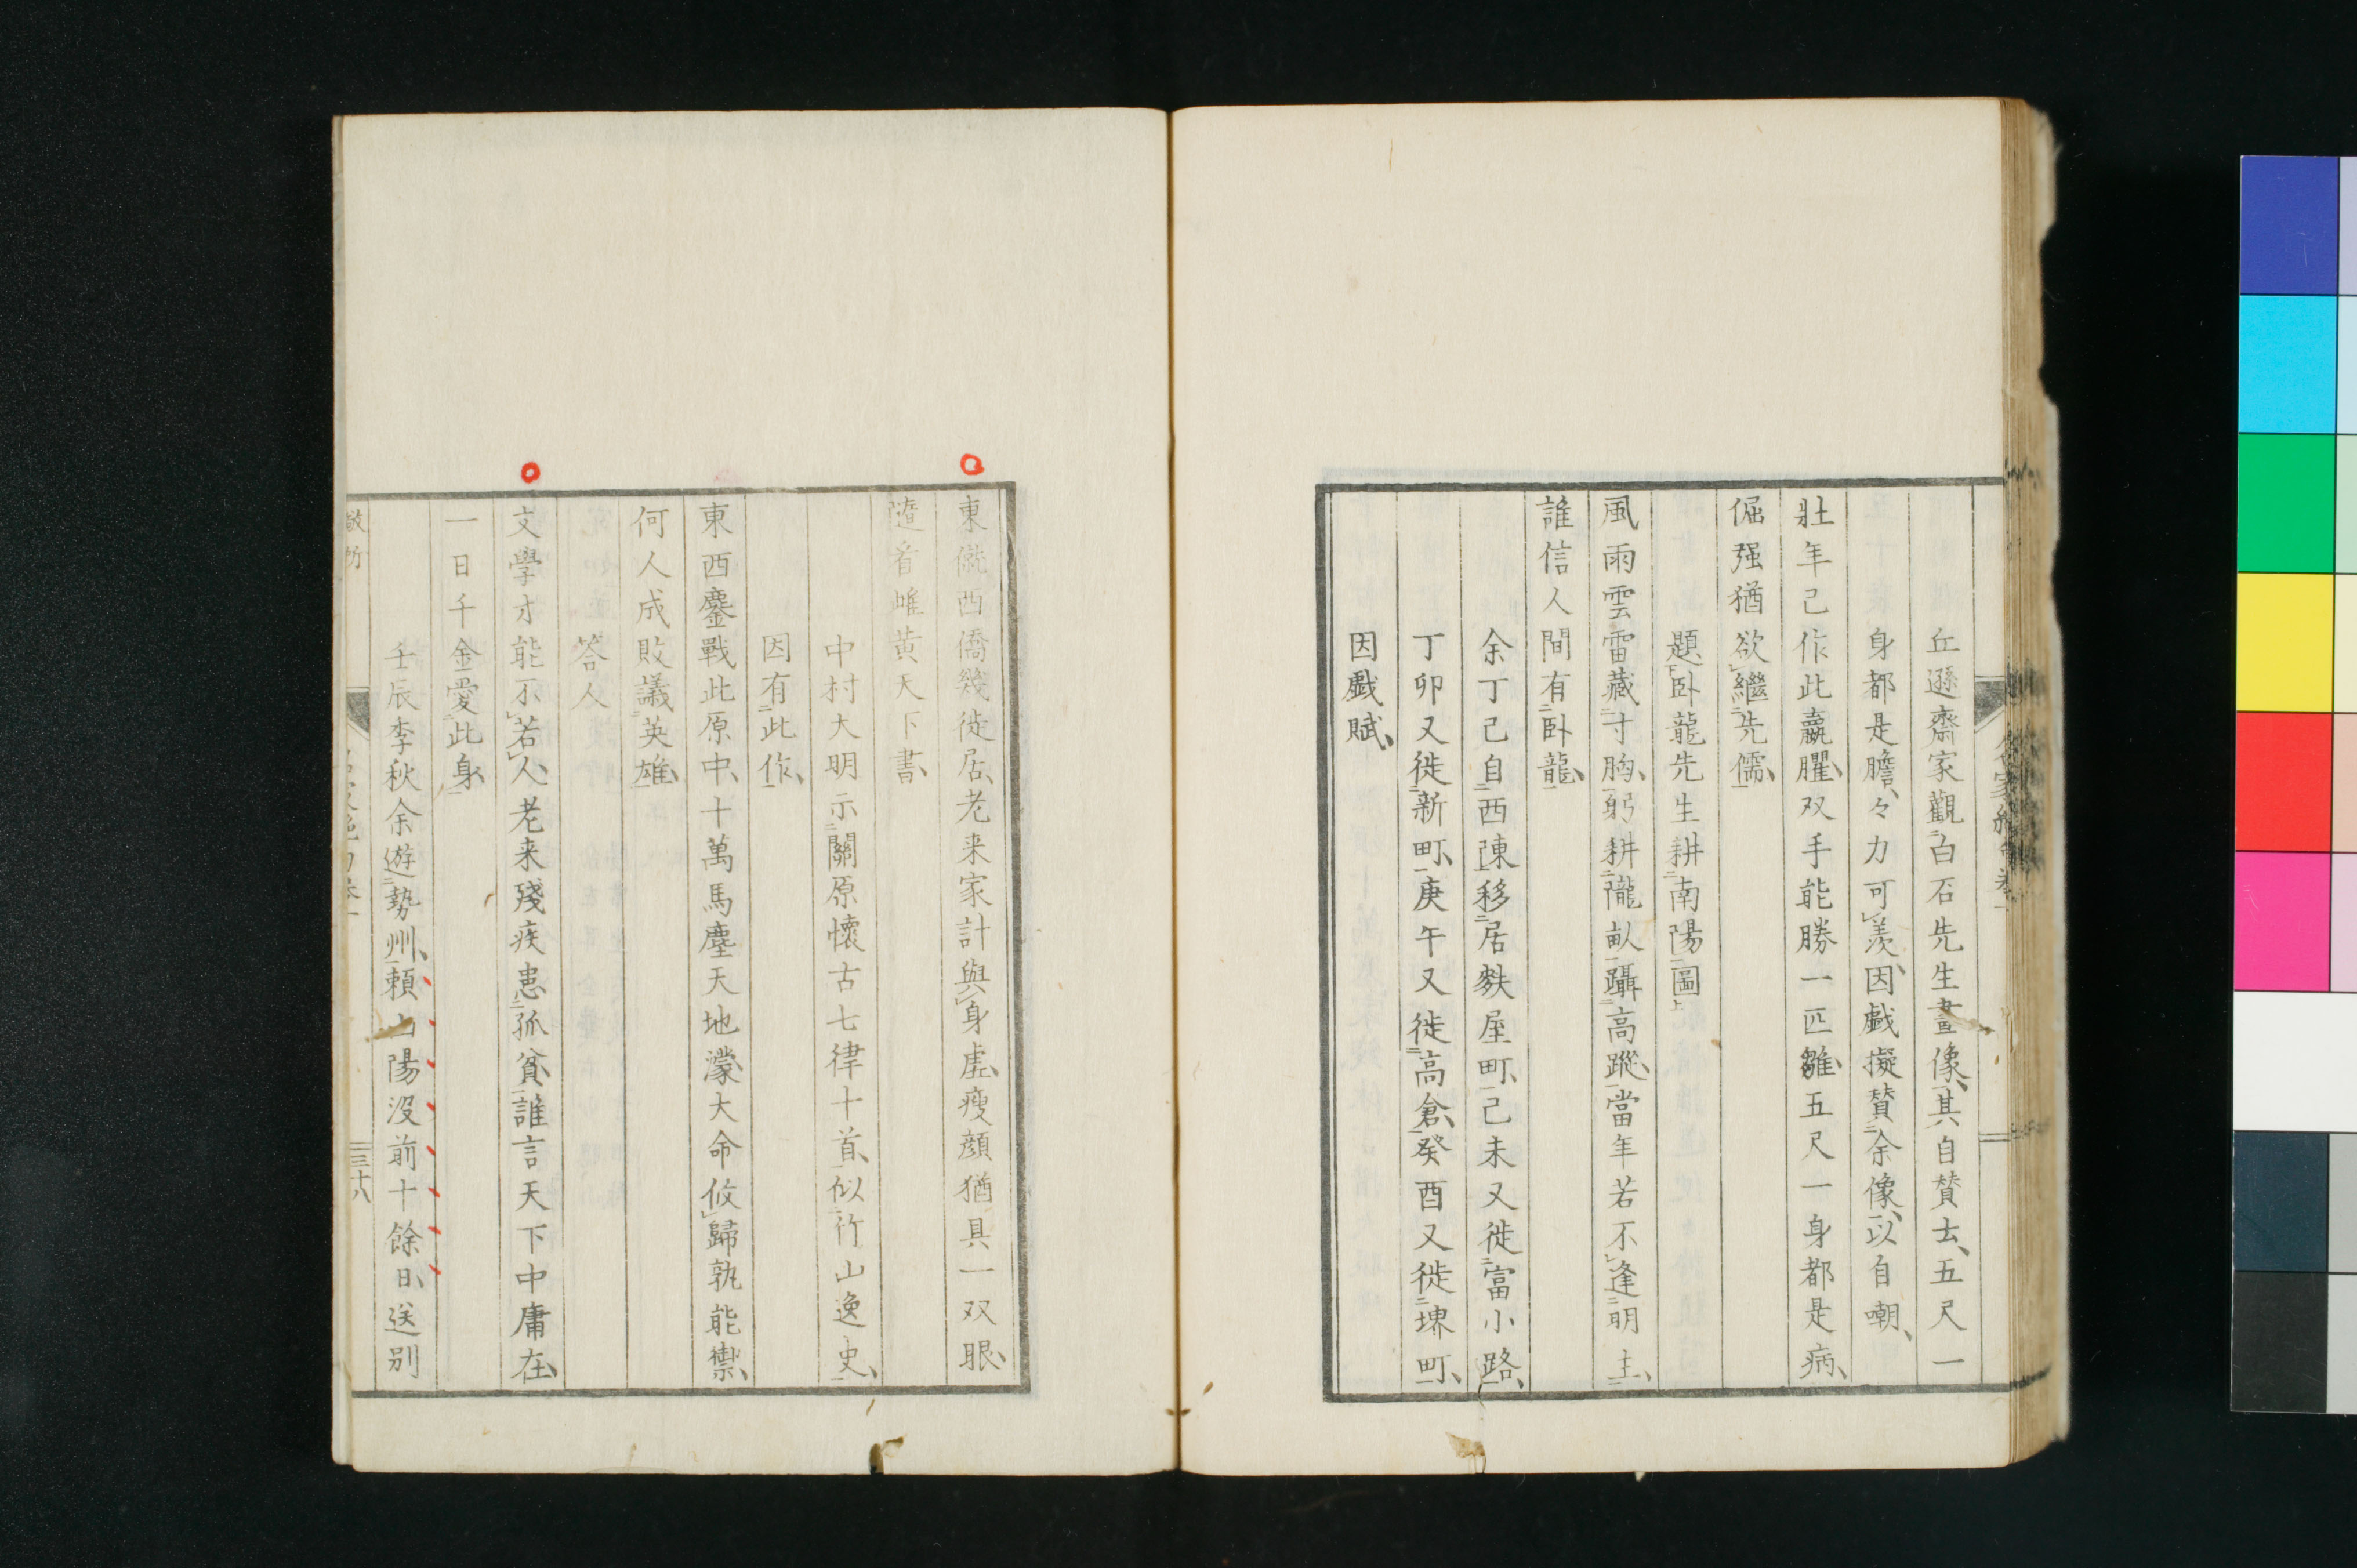 丘遜齋家觀白石先生畫像其自賛去五尺一
身都是膽々力可羨因戲擬賛余像以自嘲
壯年已作此羸臞双手能勝一匹雛五尺一身都是病
倔强猶欲繼先儒
題卧龍先生耕南陽圖
風雨雲雷藏寸胸躬耕隴畝躡高蹤當年若不逢明主
誰信人間有卧龍
余丁巳自西陳移居麩屋町己未又徙富小路
丁卯又徙新町庚午又徙高倉癸酉又徙堺町
因戲賦
東僦西僑幾徙居老来家計與身虛瘦顔猶具一双眼
隨看雌黄天下書
中村大明示關原懷古七律十首似竹山逸史
因有此作
東西鏖戰此原中十萬馬塵天地濛大命攸歸孰能禦
何人成敗議英雄
答人
文學才能不若人老来殘疾患孤貧誰言天下中庸在
一日千金愛此身
壬辰季秋余遊勢州頼山陽沒前十餘日送别
三十八